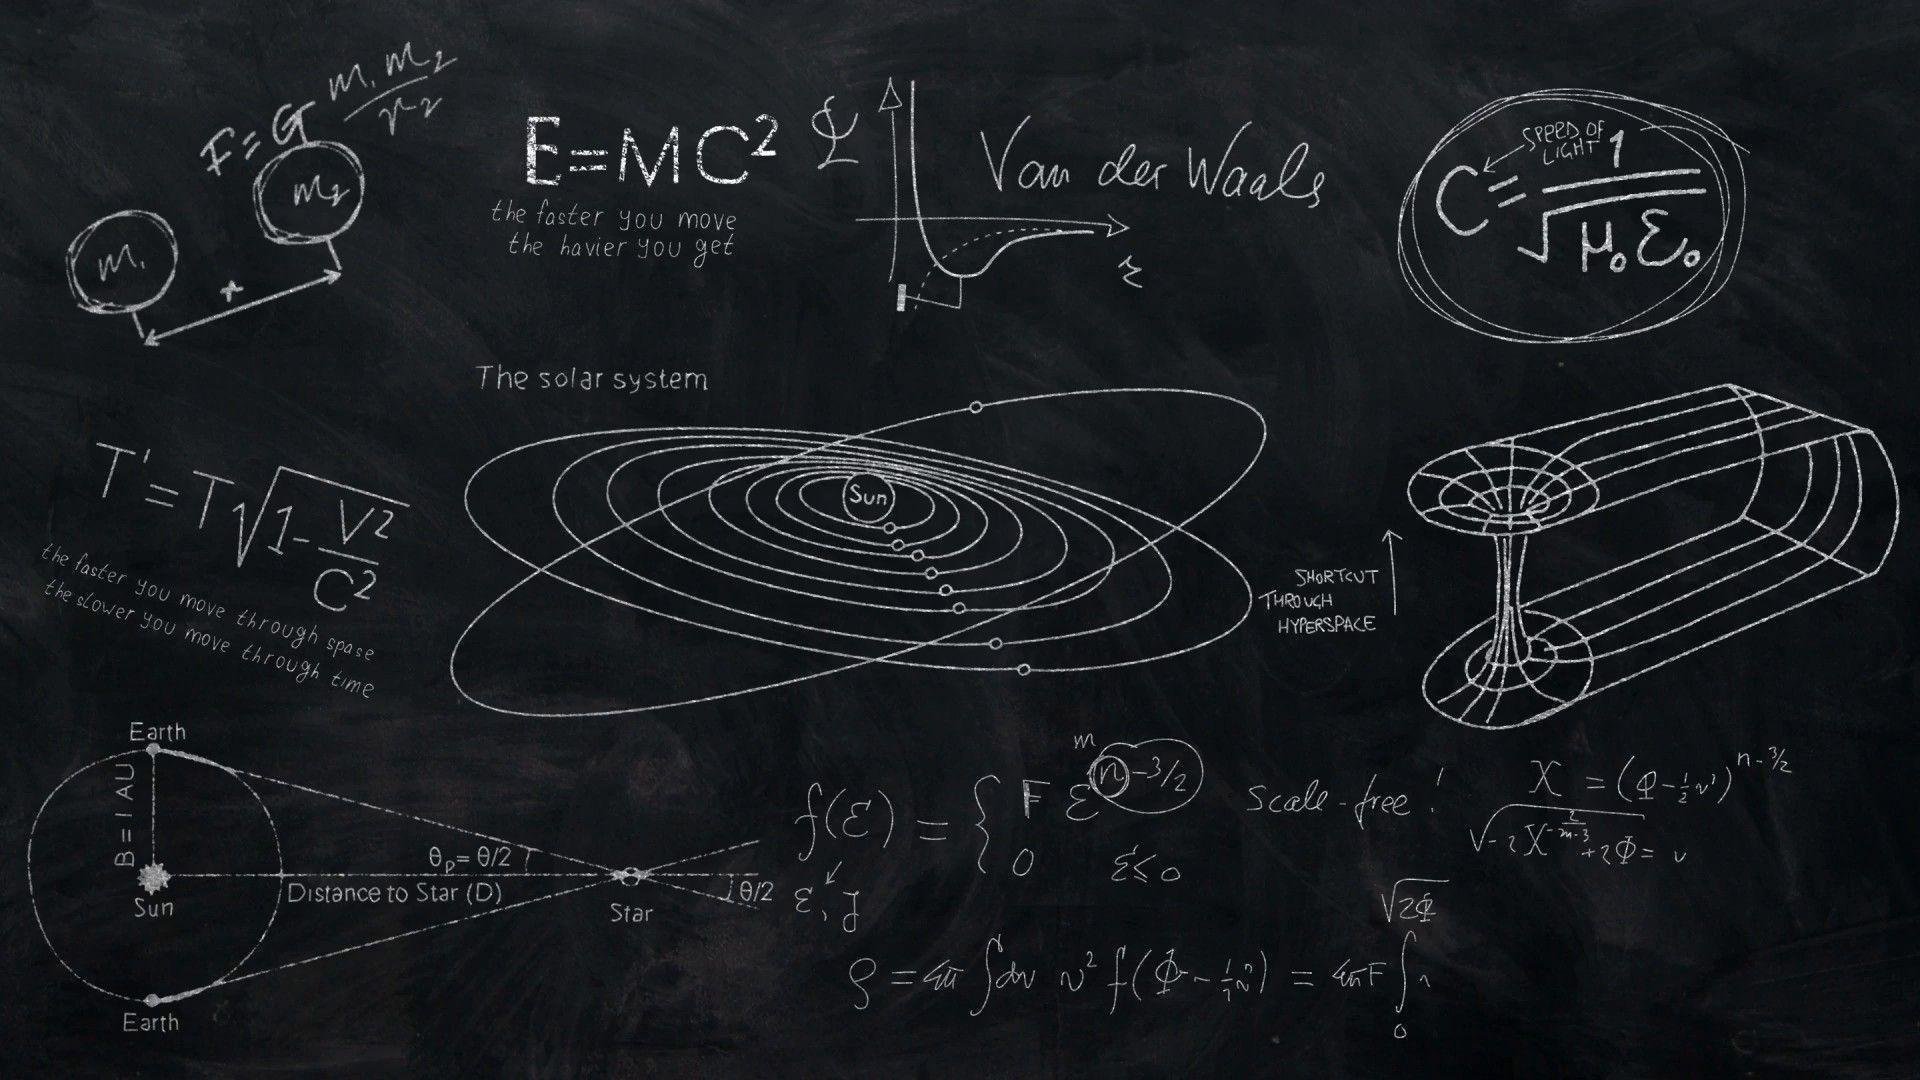 F=G m₁m₂/r₂
m₁
m₂
r
E=MC²
the faster you move
the havier you get
Φ
Van der Waals
r
SPEED OF
LIGHT
C=1/√μ₀ε₀
The solar system
Sun
T'=T√1-V²/C²
the faster you move through spase
the slower you move through time
SHORTCUT
THROUGH
HYPERSPACE
Earth
B=1AU
Sun
θp=θ/2
Distance to Star (D)
Star
θ/2
Earth
m
f(ε) = { F ε n-3/2
0 ε≤0
ε, J
scale-free!
X = (Φ-½v²)n-3/2
√2Φ
ρ = 4π ∫dv v² f(Φ-½v²) = 4πF ∫
0